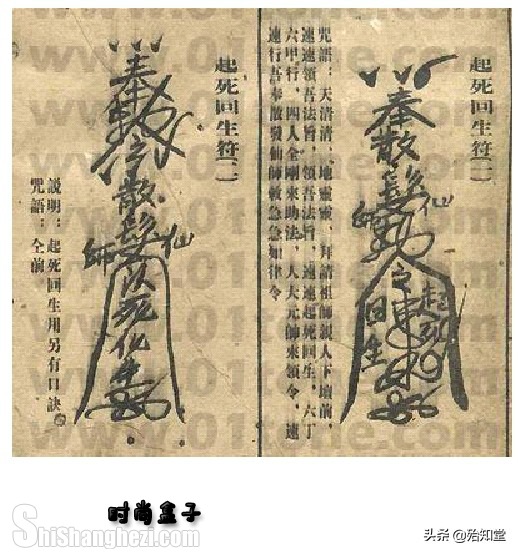 起死回生符(一)
奉散髮
仙師
勅
起死
回生
咒語：天清清、地靈靈、拜請祖師親人下壇前、
速速領吾法旨、領吾法旨、速速起死回生、六丁
六甲行、四人金剛來助法、人大元師來領令、速
速行吾奉散髮仙師敕急急如律令
起死回生符(二)
奉勅令散髮
仙師
以死化生
說明：起死回生用另有口訣。
咒語：仝前
www.01tone.com
时尚盒子
ShiShanghezi.com
头条 @殆知堂